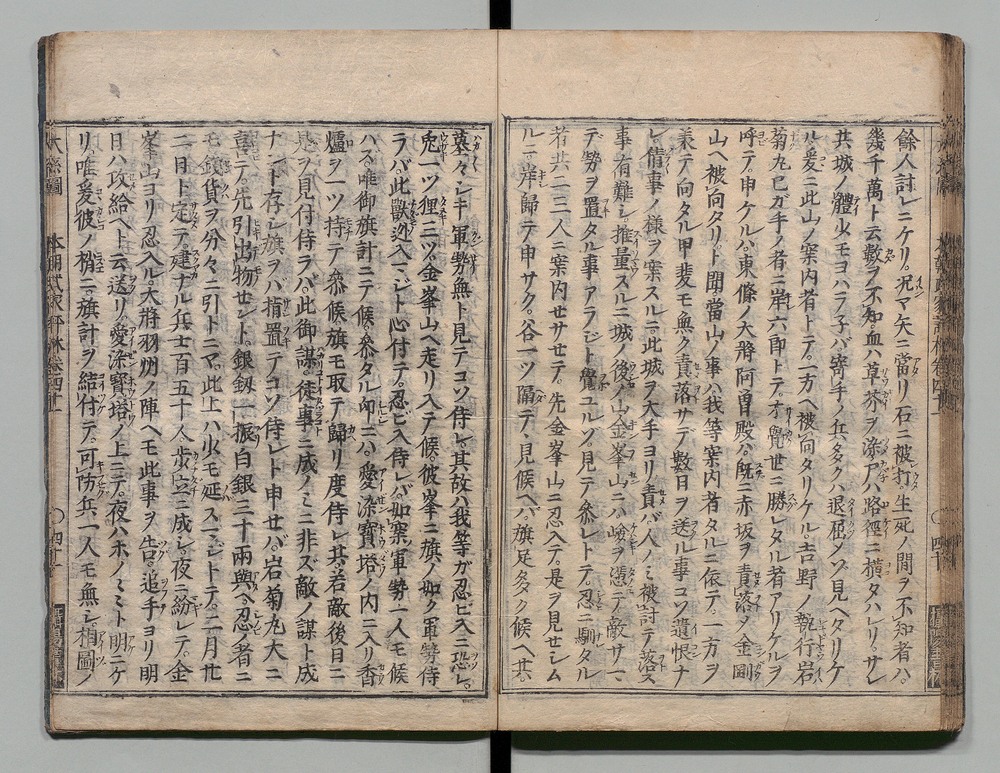 餘人討レニケリ。況マ矢ニ當リ石ニ被打生死ノ間ヲ不知者ハ。
幾千萬ト云數ヲ不知。血ハ草芥ヲ染。尸ハ路徑ニ横タハレリ。サレ
共城ノ體少モヨハラ子バ寄手ノ兵多クハ退屈メゾ見ヘタリケ
ル。爰ニ此山ノ案内者トテ。一方ヘ被向タリケル。吉野ノ執行岩
菊丸。己ガ手ノ者ニ岸六郎トテ。才覺世ニ勝レタル者アリケルヲ
呼テ。申ケルハ。東條ノ大將阿曽殿ハ。既ニ赤坂ヲ責落メ金剛
山ヘ被向タリト聞。當山ノ事ハ我等案内者タルニ依テ。一方ヲ
兼テ向タル甲斐モ無ク責落サデ。數日ヲ送ル事コソ遺恨ナ
レ。倩事ノ樣ヲ案スルニ。此城ヲ大手ヨリ責バ人ノミ被討テ落ス
事有難シ。推量スルニ。城ノ後ノ山金峯山ニハ峻ヲ憑テ敵サ一
デ勢ヲ置タル事アラジト覺ユルゾ。見テ參レトテ。忍ニ馴タル
者共二三人ニ案内セサセテ。先金峯山ニ忍入テ。是ヲ見セシム
ルニ。岸歸テ申サク。谷一ツ隔テ見候ヘバ。旗足多ク候ヘ共。
墓々シキ軍勢無ト見テコソ侍レ。其故ハ我等ガ忍ビ入ニ恐レ。
兎一ツ狸ニツ。金峯山ヘ走リ入テ候。彼峯ニ旗ノ如ク軍勢侍
ラバ。此獸迯入マジト心付テ。忍ビ入侍レバ。如案軍勢一人モ候
ハズ。唯御旗計ニテ候。參タル印ニハ。愛染寶塔ノ内ニ入リ香
爐ヲ一ツ持テ參候。旗モ取テ歸リ度侍レ共。若敵後日ニ
是ヲ見付侍ラバ。此御謀徒事ニ成ノミニ非ズ。敵ノ謀ト成
ナント存レ旗ヲバ指置テコソ侍レト申セバ。岩菊丸大ニ
喜ニテ。先引出物セントテ。銀劔一振白銀三十兩與ヘ。忍ノ者ニ
モ銀貨ヲ分々ニ引トニマ。此上ハ少モ延スマジトテ。二月廿
二日ト定テ。健ナル兵士百五十人歩立ニ成シ。夜ニ紛レテ。金
峯山ヨリ忍入ル。大將羽州ノ陣ヘモ此事ヲ告。追手ヨリ明
日ハ攻給ヘト云送リ。愛染寶塔ノ上ニテ。夜ハホノミト明ニケ
リ。唯爰彼ノ梢ニ旗計ヲ結付テ。可防兵一人モ無シ。相圖ノ